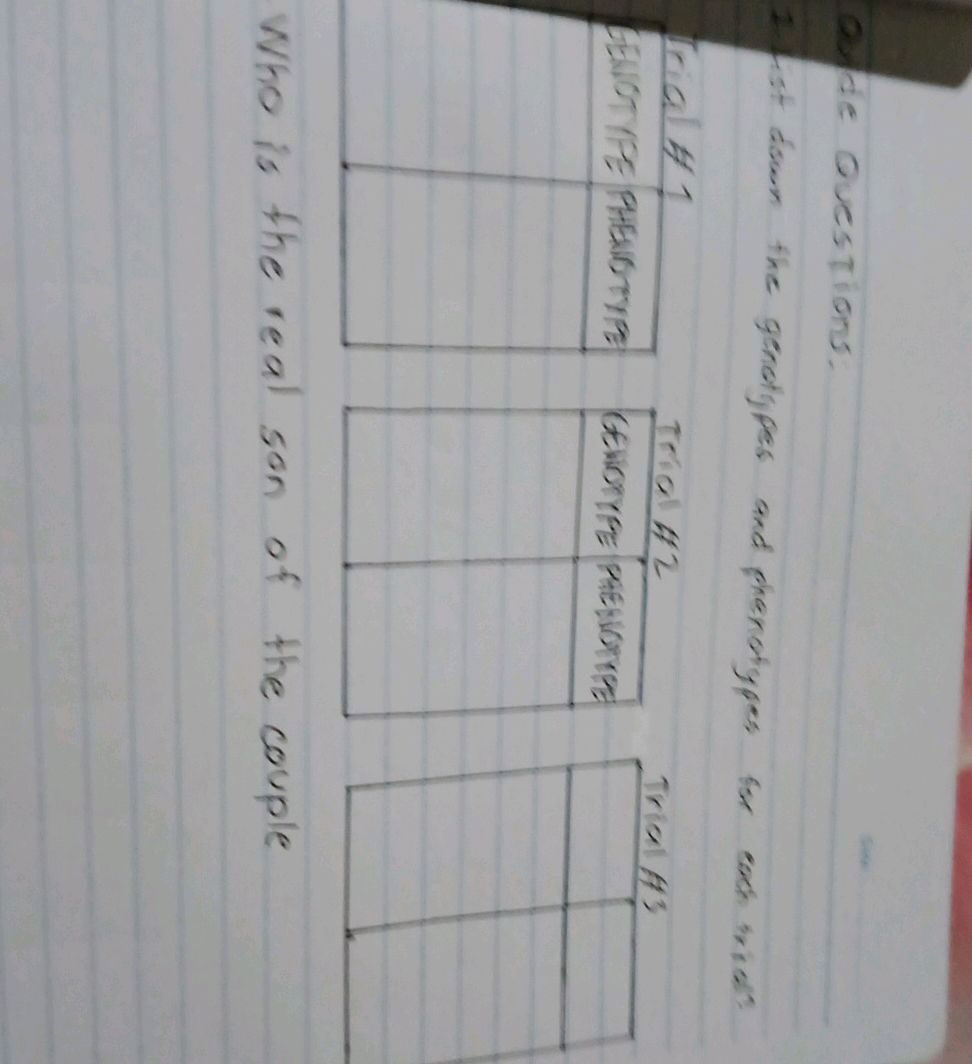 Guide Questions:
1. List down the genotypes and phenotypes for each trial?
Trial #1 Trial #2 Trial #3
GENOTYPE PHENOTYPE GENOTYPE PHENOTYPE
Who is the real son of the couple